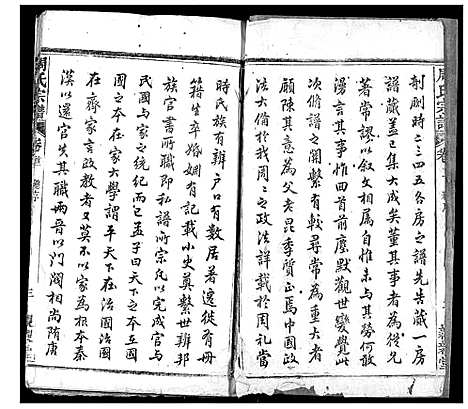 剞劂時三四五各房之譜先告蕆一房
譜蕆蓋已集大成矣董其事者為從兄
著常謬以敘文相屬自惟未與其勞何敢
濤言其事惟四首前塵默觀世變覺此
次脩譜之關繫有較尋常為重大者
願陳其意為父老昆季質正焉中國政
法大備於我周周之政法詳載於周礼當
時氏族有辨戶口有數居著遷徙有冊
籍生卒婚姻有記載小史奠繫世辨邦
族官書所職即私譜所宗凡以完成官与
民國与家之統紀而已孟子曰天下之本在國
國之本在家大學謂平天下在治國治國
在齊家言政教者又莫不以家為根本秦
漢以還官失其職兩晉以門閥相尚隋唐
周氏宗譜
三